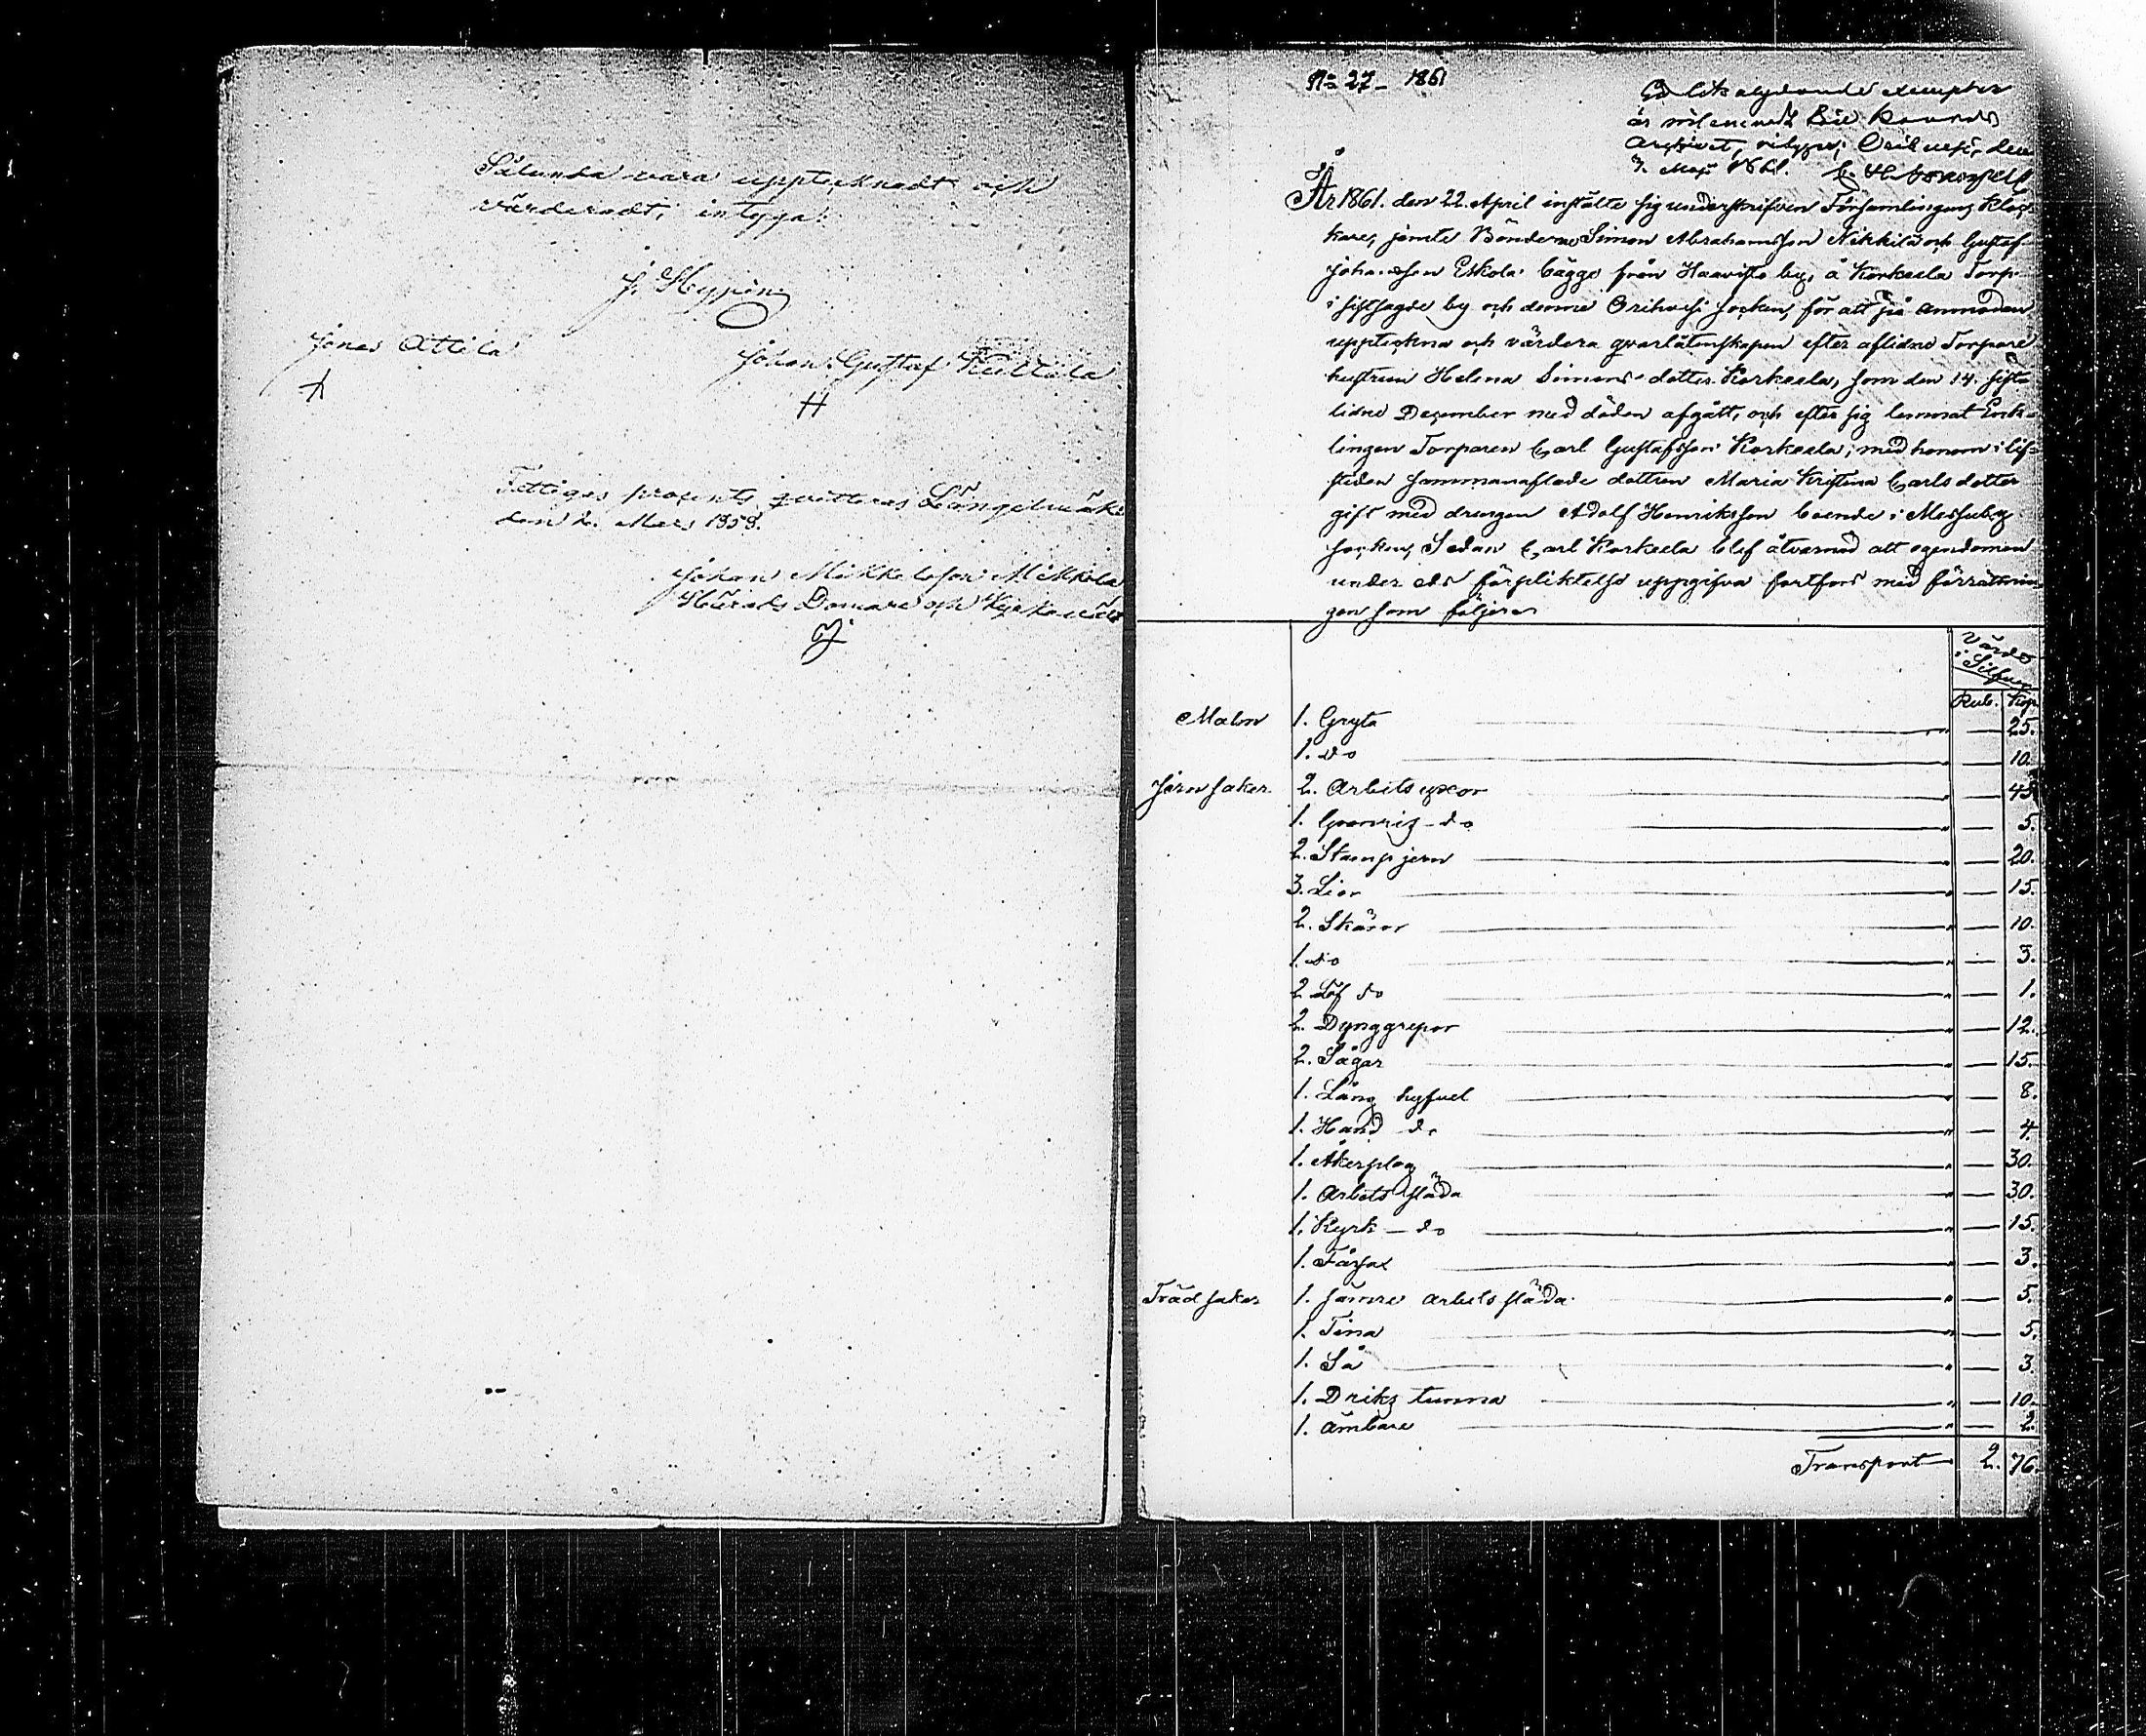 Sålunda vara upptecknadt och
värderadt, intyga:
J. Hypping
Jonas Attila
Johan Gustaf Kuttila
Fattiges procents qvitteras Längelmäki
den 2. Mars 1859.
Johan Mikkelsson Mikkola
Härads Domare och Kyrkovärd
No 27 - 1861
Ett lika lydande exemplar
är inlemnadt till
Archivet, intygar; Orihvesi den
7. Maj 1861.
År 1861. den 22. April instälte sig underskrifven Församlingens Kloc-
kare, jemte Bönderne Simon Abrahamsson Nikkilä och Gustaf
Johansson Eskola bägge från Haavisto by, å Korkeela Torp
i sistsagde by och denne Orihvesi Socken, för att på anmodan
uppteckna och värdera qvarlåtenskapen efter aflidne Torpare
hustrun Helena Simons dotter Korkeela, som den 14. sist-
lidne December med döden afgått, och efter sig lemnat Enk-
lingen Torparen Carl Gustafsson Korkeela, med honom i lifs-
tiden sammanaflade dottren Maria Kristina Carlsdotter
gift med drengen Adolf Henriksson boende i Messuby
Socken, Sedan Carl Korkeela blef åtvarnad att egendomen
under eds förpliktelse uppgifva fortfors med förrättnin-
gen som följer
Värde
i Silfver
Rub. Kop.
Malm 1. Gryta " — 25.
1. do " — 10.
Jern saker 2. Arbets yxor " — 45.
1. Granris - do " — 5.
2. Stamp jern " — 20.
3. Lior " — 15.
2. Skäror " — 10.
1. do " — 3.
2 Löf do " — 1.
2. Dynggrepor " — 12.
2. Sågar " — 15.
1. Lång hyfvel " — 8.
1. Hand do " — 4.
1. Åkerplog " — 30.
1. Arbets släda " — 30.
1. Kyrk - do " — 15.
1. Fårsax " — 3.
Träd saker 1. sämre arbets släda " — 5.
1. Tina " — 5.
1. Så " — 3.
1. Driks tunna " — 10.
1. Ämbare " — 2.
Transport 2. 76.